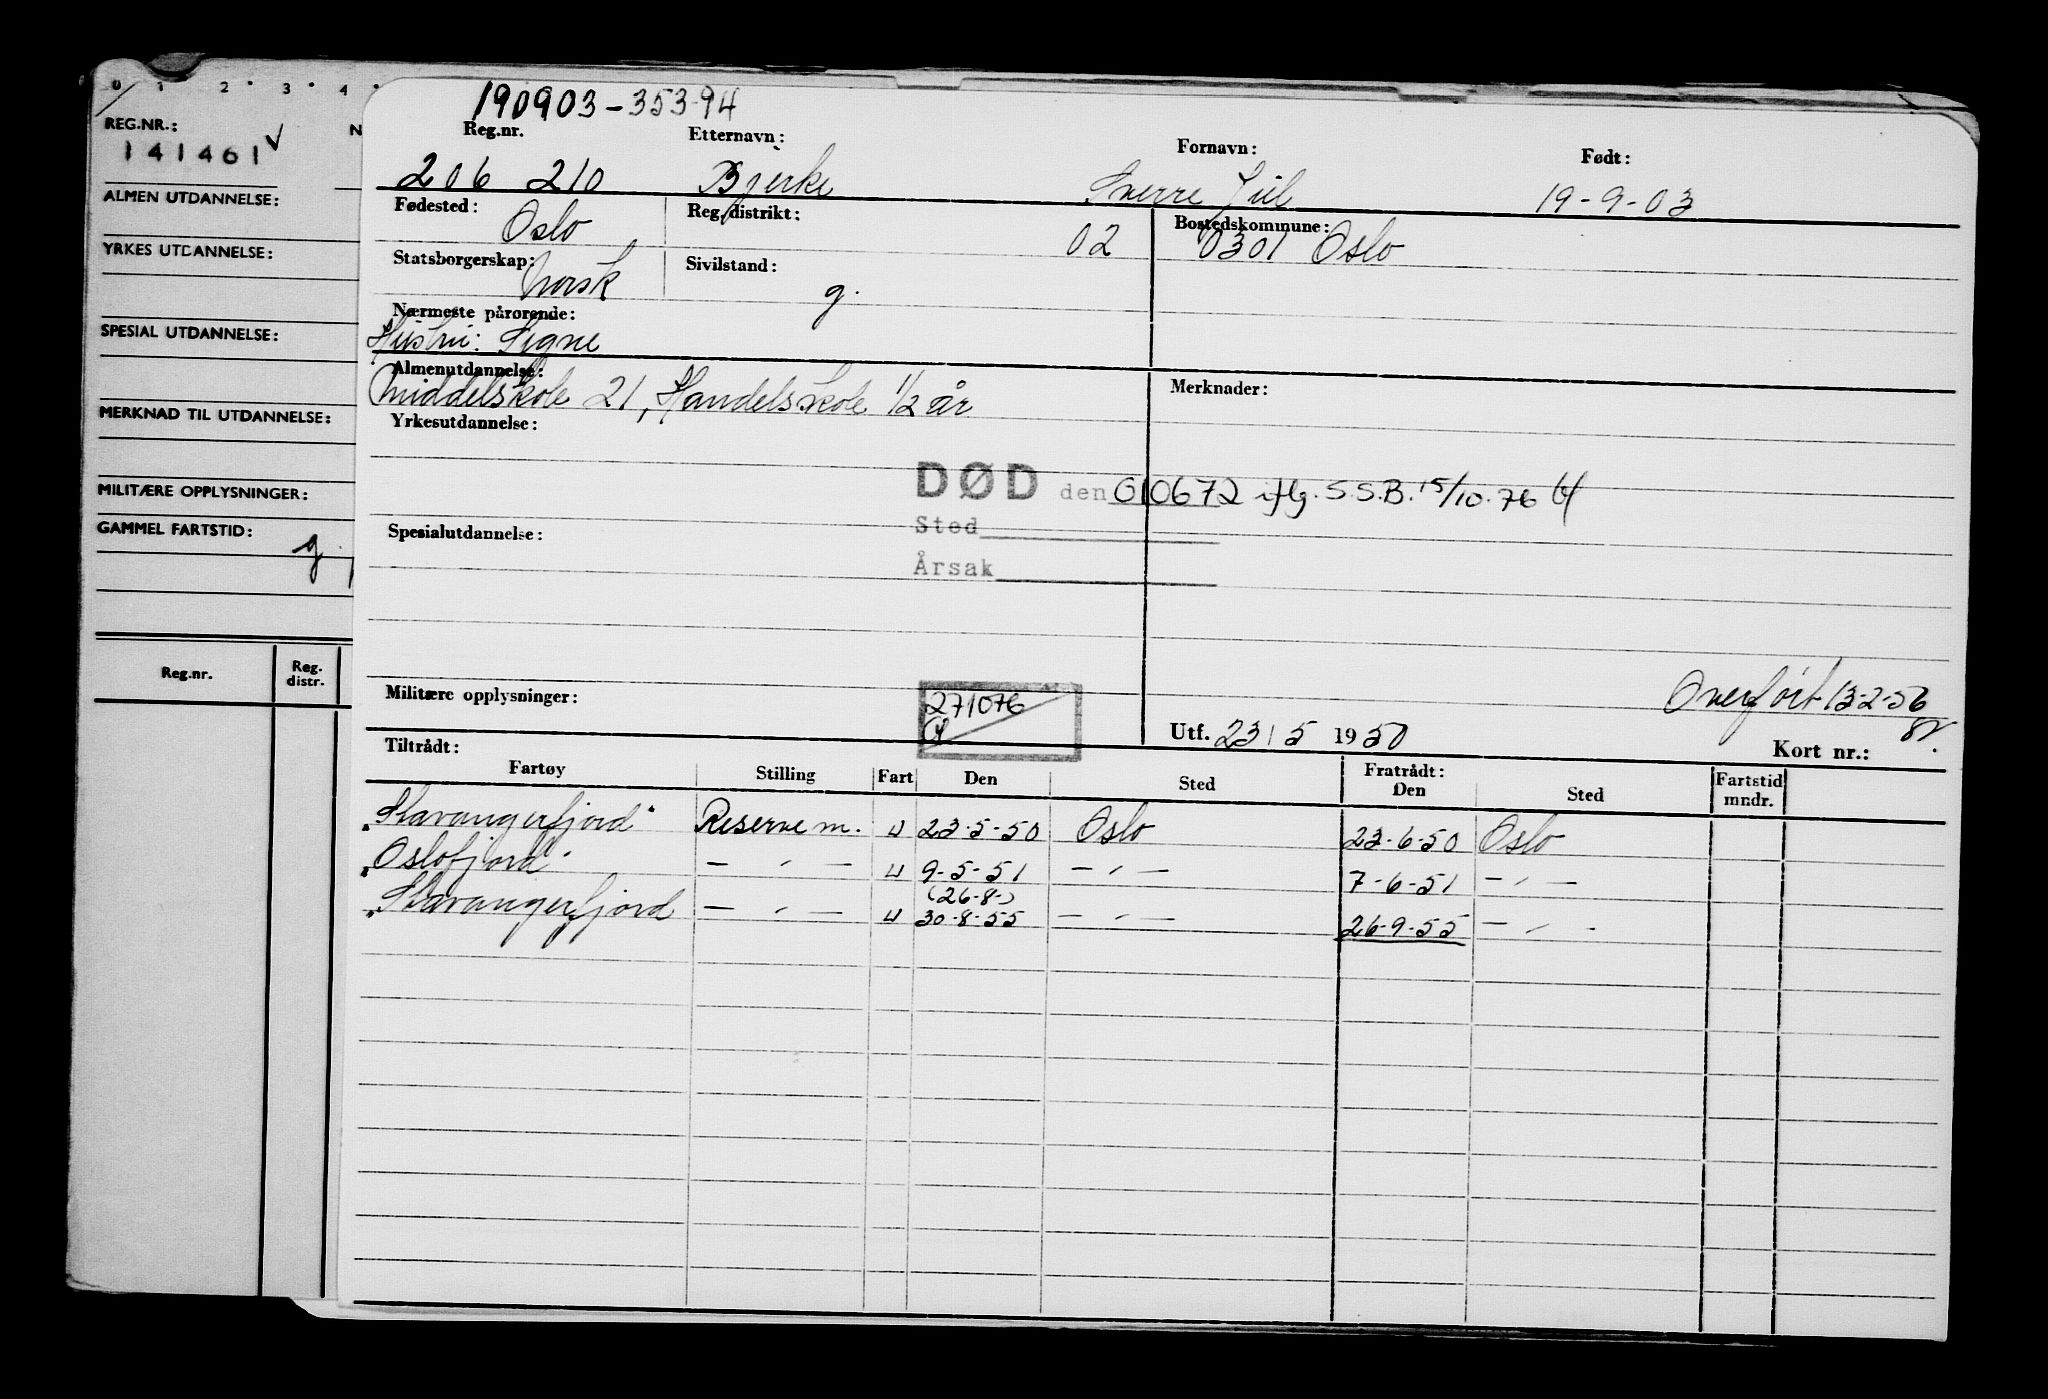 0 1 2 3 4
REG.NR.:
141461
ALMEN UTDANNELSE:
YRKES UTDANNELSE:
SPESIAL UTDANNELSE:
MERKNAD TIL UTDANNELSE:
MILITÆRE OPPLYSNINGER:
GAMMEL FARTSTID:
g.
Reg.nr. Reg. distr.
190903-353.94
Reg.nr. Etternavn: Fornavn: Født:
206 210 Bjerke Sverre 19-9-03
Fødested: Oslo Reg.distrikt: 02 Bostedskommune: 0301 Oslo
Statsborgerskap: Norsk Sivilstand: g.
Nærmeste pårørende:
Hustru: Signe
Almenutdannelse: Merknader:
Middelskole 21, Handelskole 1/2 år
Yrkesutdannelse:
DØD den 010672 iflg. S.S.B. 15/10.76
Sted
Spesialutdannelse:
Årsak
Overført 13-2-56
Militære opplysninger: 271076
Utf. 23/5 1950 Kort nr.:
Tiltrådt: Fratrådt:
Fartøy Stilling Fart Den Sted Den Sted Fartstid mndr.
"Stavangerfjord" Reserve m. U 23-5-50 Oslo 23-6-50 Oslo
"Oslofjord" — " — U 9-5-51 — " — 7-6-51 — " —
(26-8-)
"Stavangerfjord — " — U 30-8-55 — " — 26-9-55 — " —